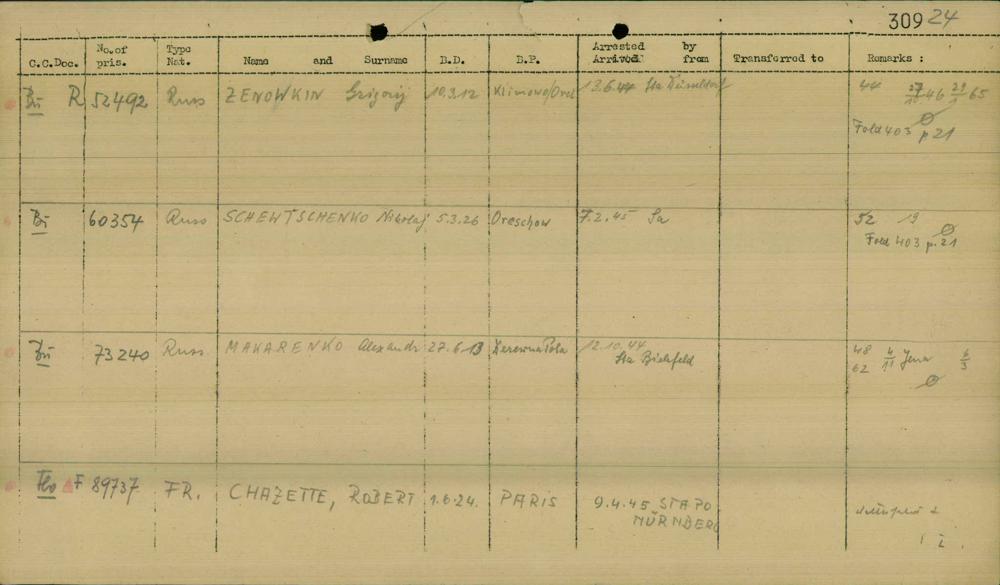 309 24
C.C.Doc. No. of pris. Type Nat. Name and Surname B.D. B.P. Arrested by Arrived from Transferred to Remarks :
Bu R 52492 Russ ZENOWKIN Grigorij 10.3.12 Klimowo/Orel 13.6.44 Sta Düsseldorf 44 46 65
Fold 403 p 21
Bu 60354 Russ SCHEWTSCHENKO Nikolaj 5.3.26 Oreschow 7.2.45 Sa 52 19
Fold 403 p. 21
Bu 73240 Russ MAKARENKO Alexandr 27.6.13 12.10.44 48 4/11 Jena 6/3
Sta Bielefeld 62
Flo F 89737 FR. CHAZETTE, ROBERT 1.6.24. PARIS 9.4.45 STAPO
NÜRNBERG